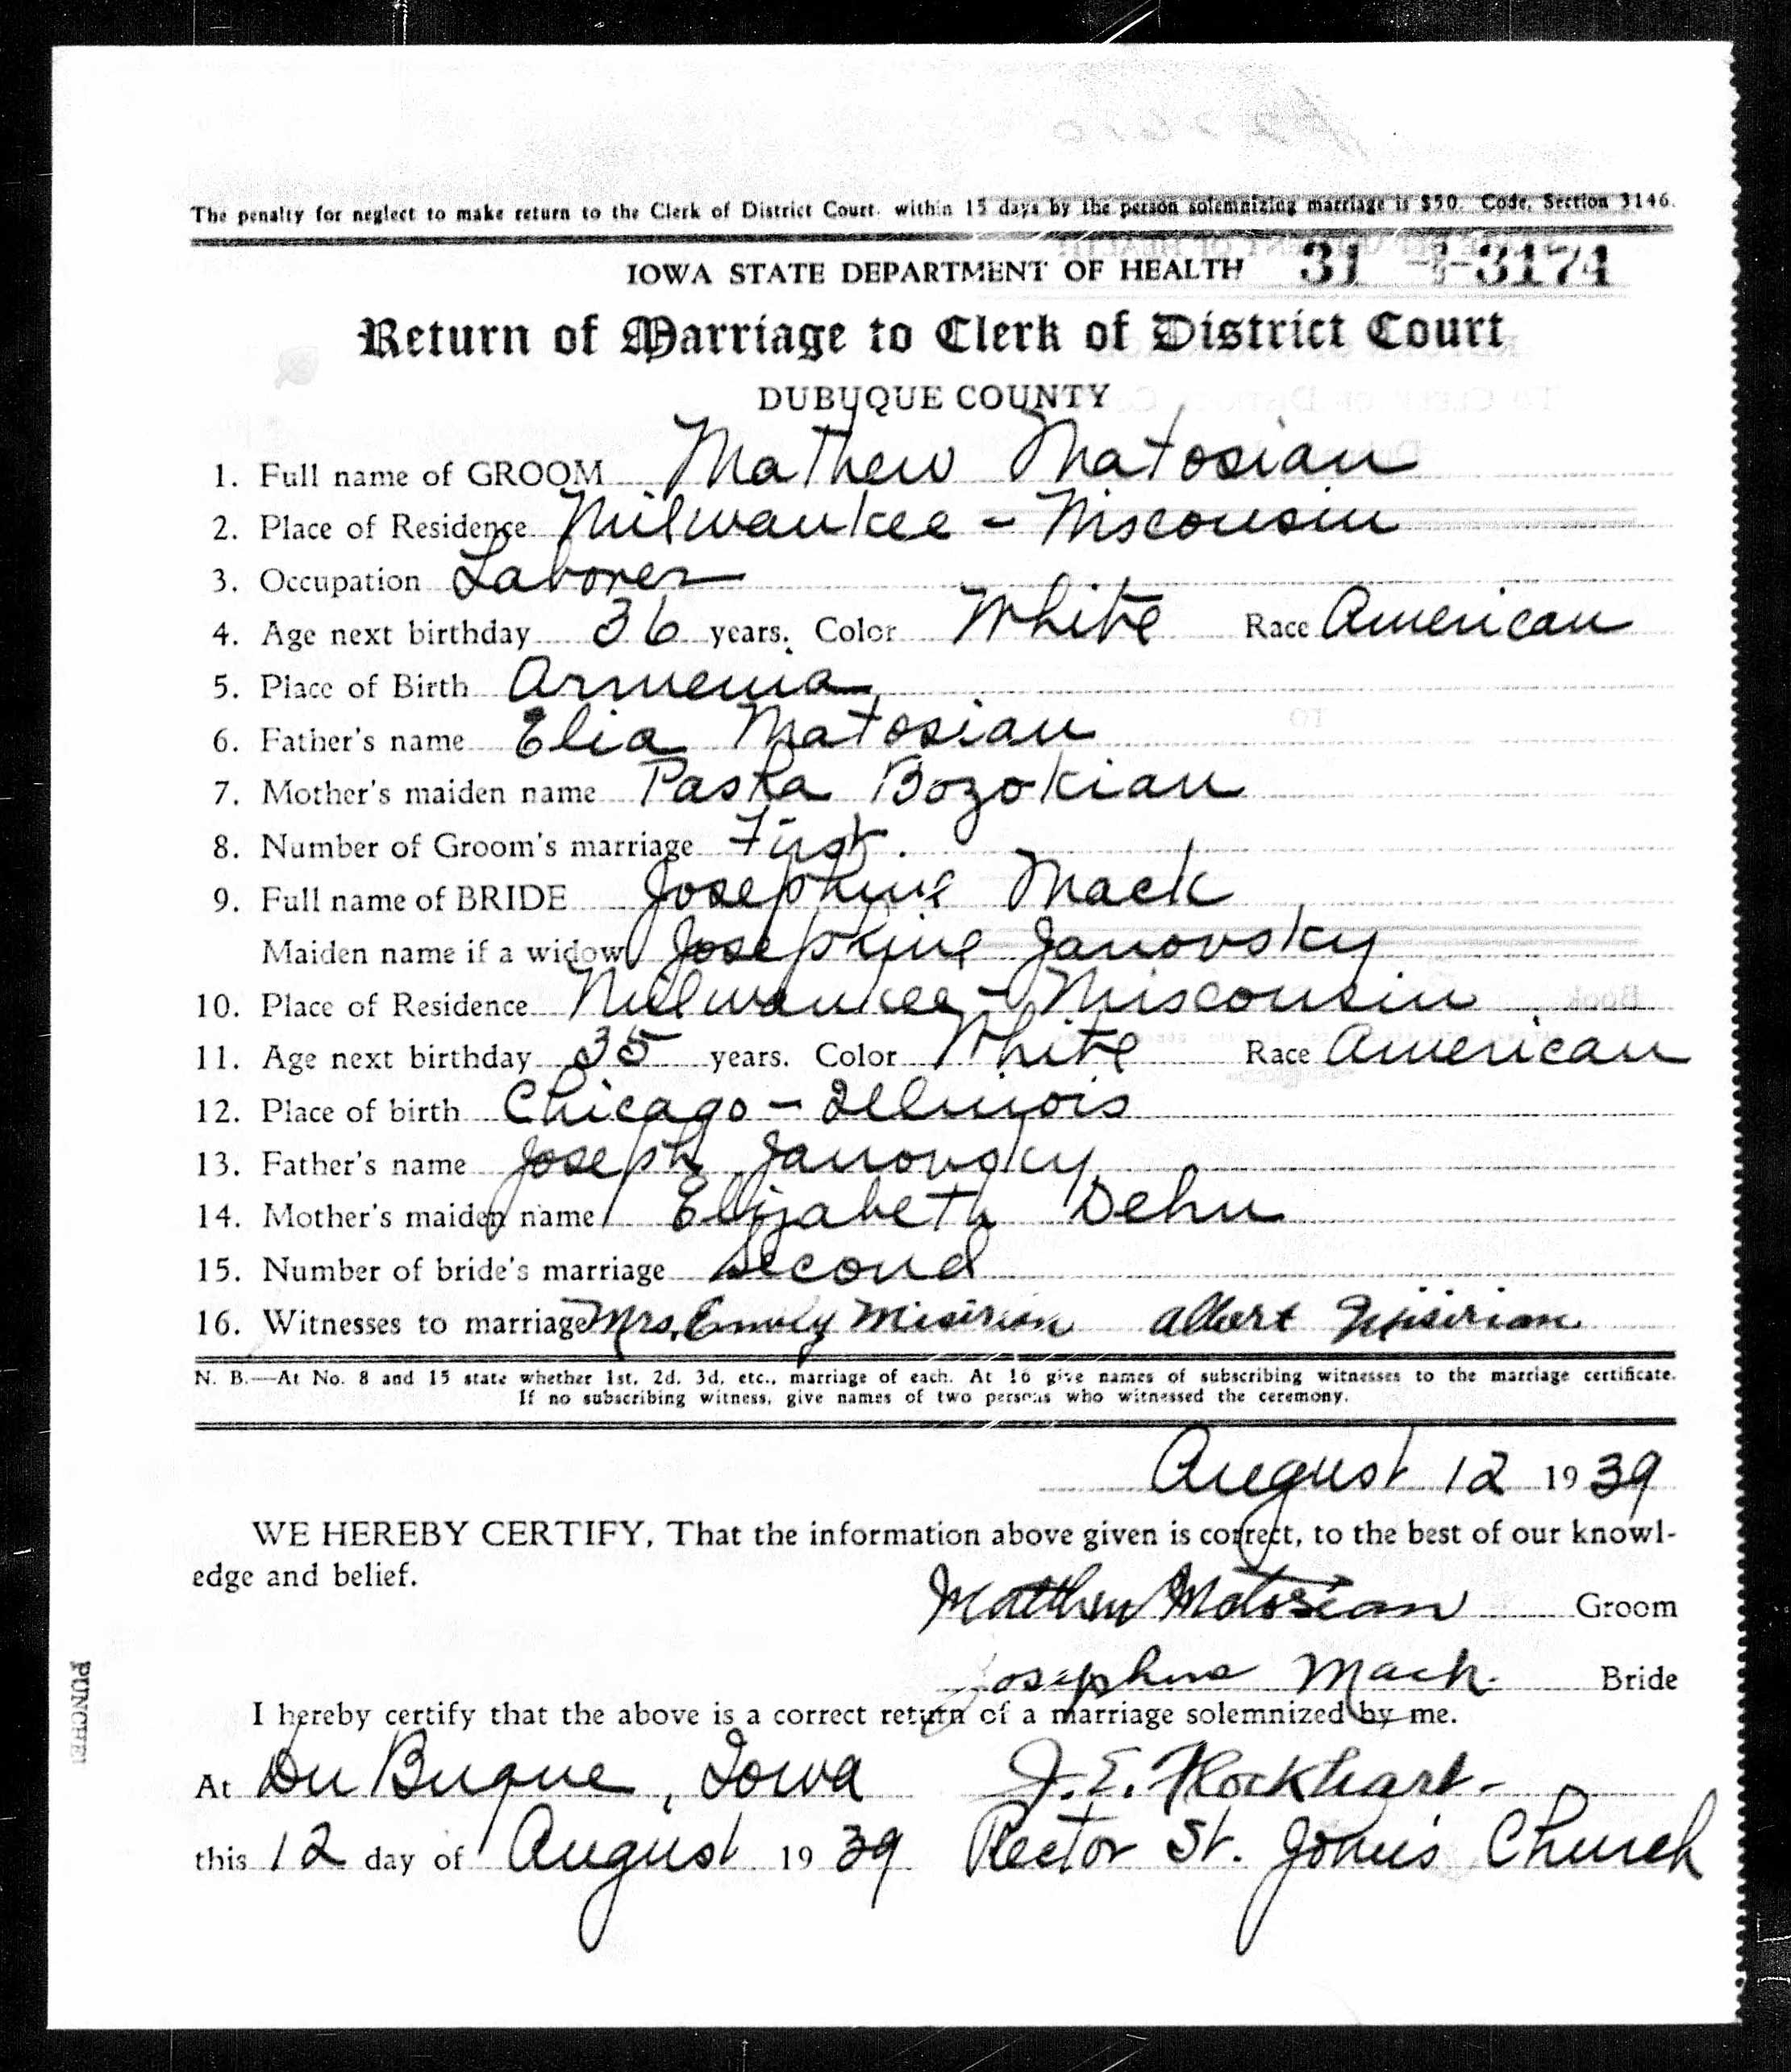 The penalty for neglect to make return to the Clerk of District Court within 15 days by the person solemnizing marriage is $50. Code, Section 3146.
IOWA STATE DEPARTMENT OF HEALTH 31 -3174
Return of Marriage to Clerk of District Court
DUBUQUE COUNTY
1. Full name of GROOM Mathew Matosian
2. Place of Residence Milwaukee - Wisconsin
3. Occupation Laborer
4. Age next birthday 36 years. Color White Race American
5. Place of Birth Armenia
6. Father's name Elia Matosian
7. Mother's maiden name Pasha Bozokian
8. Number of Groom's marriage First.
9. Full name of BRIDE Josephine Mack
Maiden name if a widow Josephine Janovsky
10. Place of Residence Milwaukee - Wisconsin
11. Age next birthday 35 years. Color White Race American
12. Place of birth Chicago - Illinois
13. Father's name Joseph Janovsky
14. Mother's maiden name Elizabeth Dehn
15. Number of bride's marriage Second
16. Witnesses to marriage Mrs. Emily Misirian Albert Misirian
N. B.—At No. 8 and 15 state whether 1st, 2d, 3d, etc., marriage of each. At 16 give names of subscribing witnesses to the marriage certificate.
If no subscribing witness, give names of two persons who witnessed the ceremony.
August 12 1939
WE HEREBY CERTIFY, That the information above given is correct, to the best of our knowl-
edge and belief.
Matthew Matosian Groom
Josephine Mack Bride
I hereby certify that the above is a correct return of a marriage solemnized by me.
At DuBuque, Iowa J. E. Flockhart -
this 12 day of August 1939 Rector St. John's Church